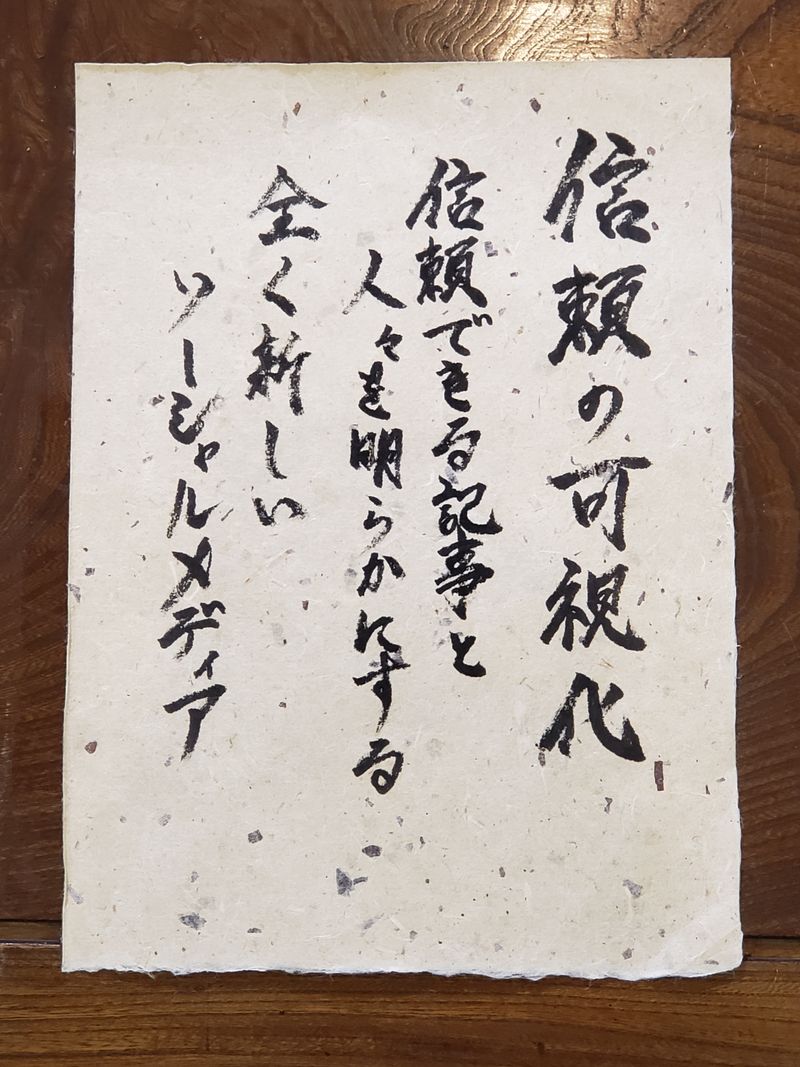 信頼の可視化
信頼できる記事と
人々を明らかにする
全く新しい
ソーシャルメディア